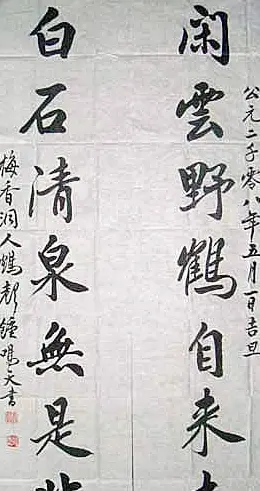 公元二千零八年五月一日吉旦
閑雲野鶴自来
白石清泉無是
梅香洞人鍾鳴天書